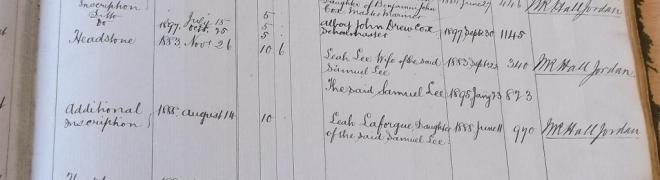 Inscription 5 Daughter of Benjamin John 446 MR Hall Jordan
Ditto July 15 5 Cox Master Mariner
Do 1897. Sept. 25 5 Albert John Drew Cox 1897 Sept 30 1145
5 Schoolmaster
Headstone 1883. Nov 26 10 6 Leah Lee Wife of the said 1883 Sept 22 340 MR Hall Jordan
Samuel Lee
The said Samuel Lee 1895 Jany 23 823
Additional 1888. August 14 10 Leah Laforgue, Daughter 1888 June 11 970 MR Hall Jordan
Inscription of the said Samuel Lee